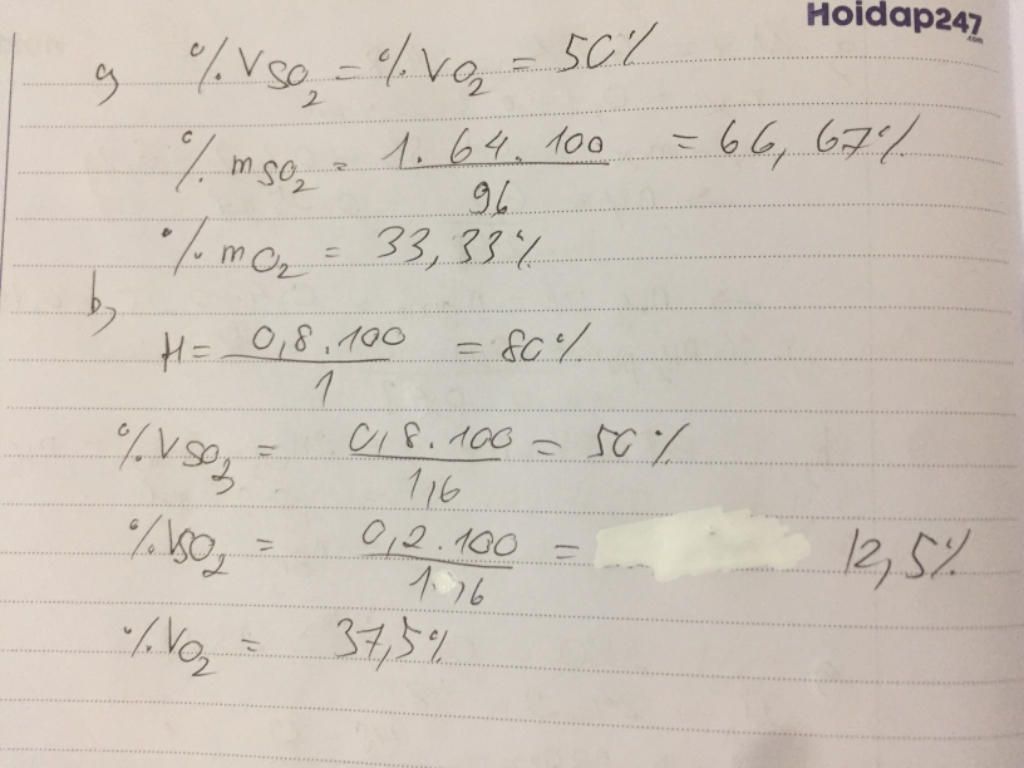 Hoidap247
.com
a, % VSO2 = % VO2 = 50%
% mSO2 = 1.64.100 / 96 = 66,67%
% mO2 = 33,33%
b,
H = 0,8.100 / 1 = 80%
% VSO3 = 0,8.100 / 1,6 = 50%
% VSO2 = 0,2.100 / 1,6 = 12,5%
% VO2 = 37,5%